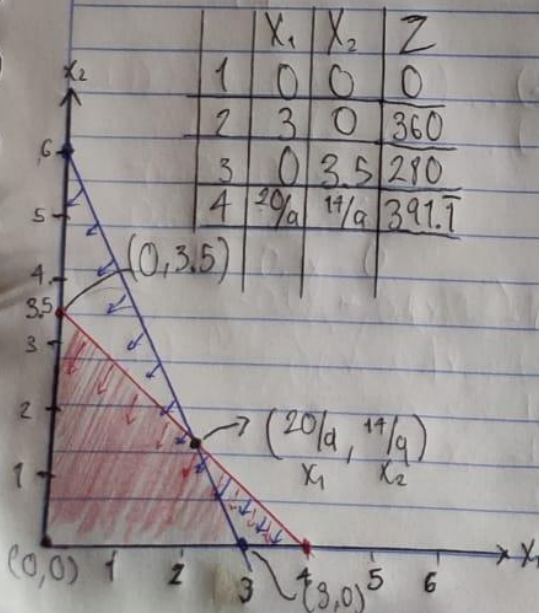 X₁ X₂ Z
1 0 0 0
2 3 0 360
3 0 3.5 280
4 20/9 14/9 391.1̅
x₂
6
5
(0,3.5)
4
3.5
3
2
(20/9, 14/9)
x₁ x₂
1
(0,0) 1 2 3 4 5 6 X₁
(3,0)